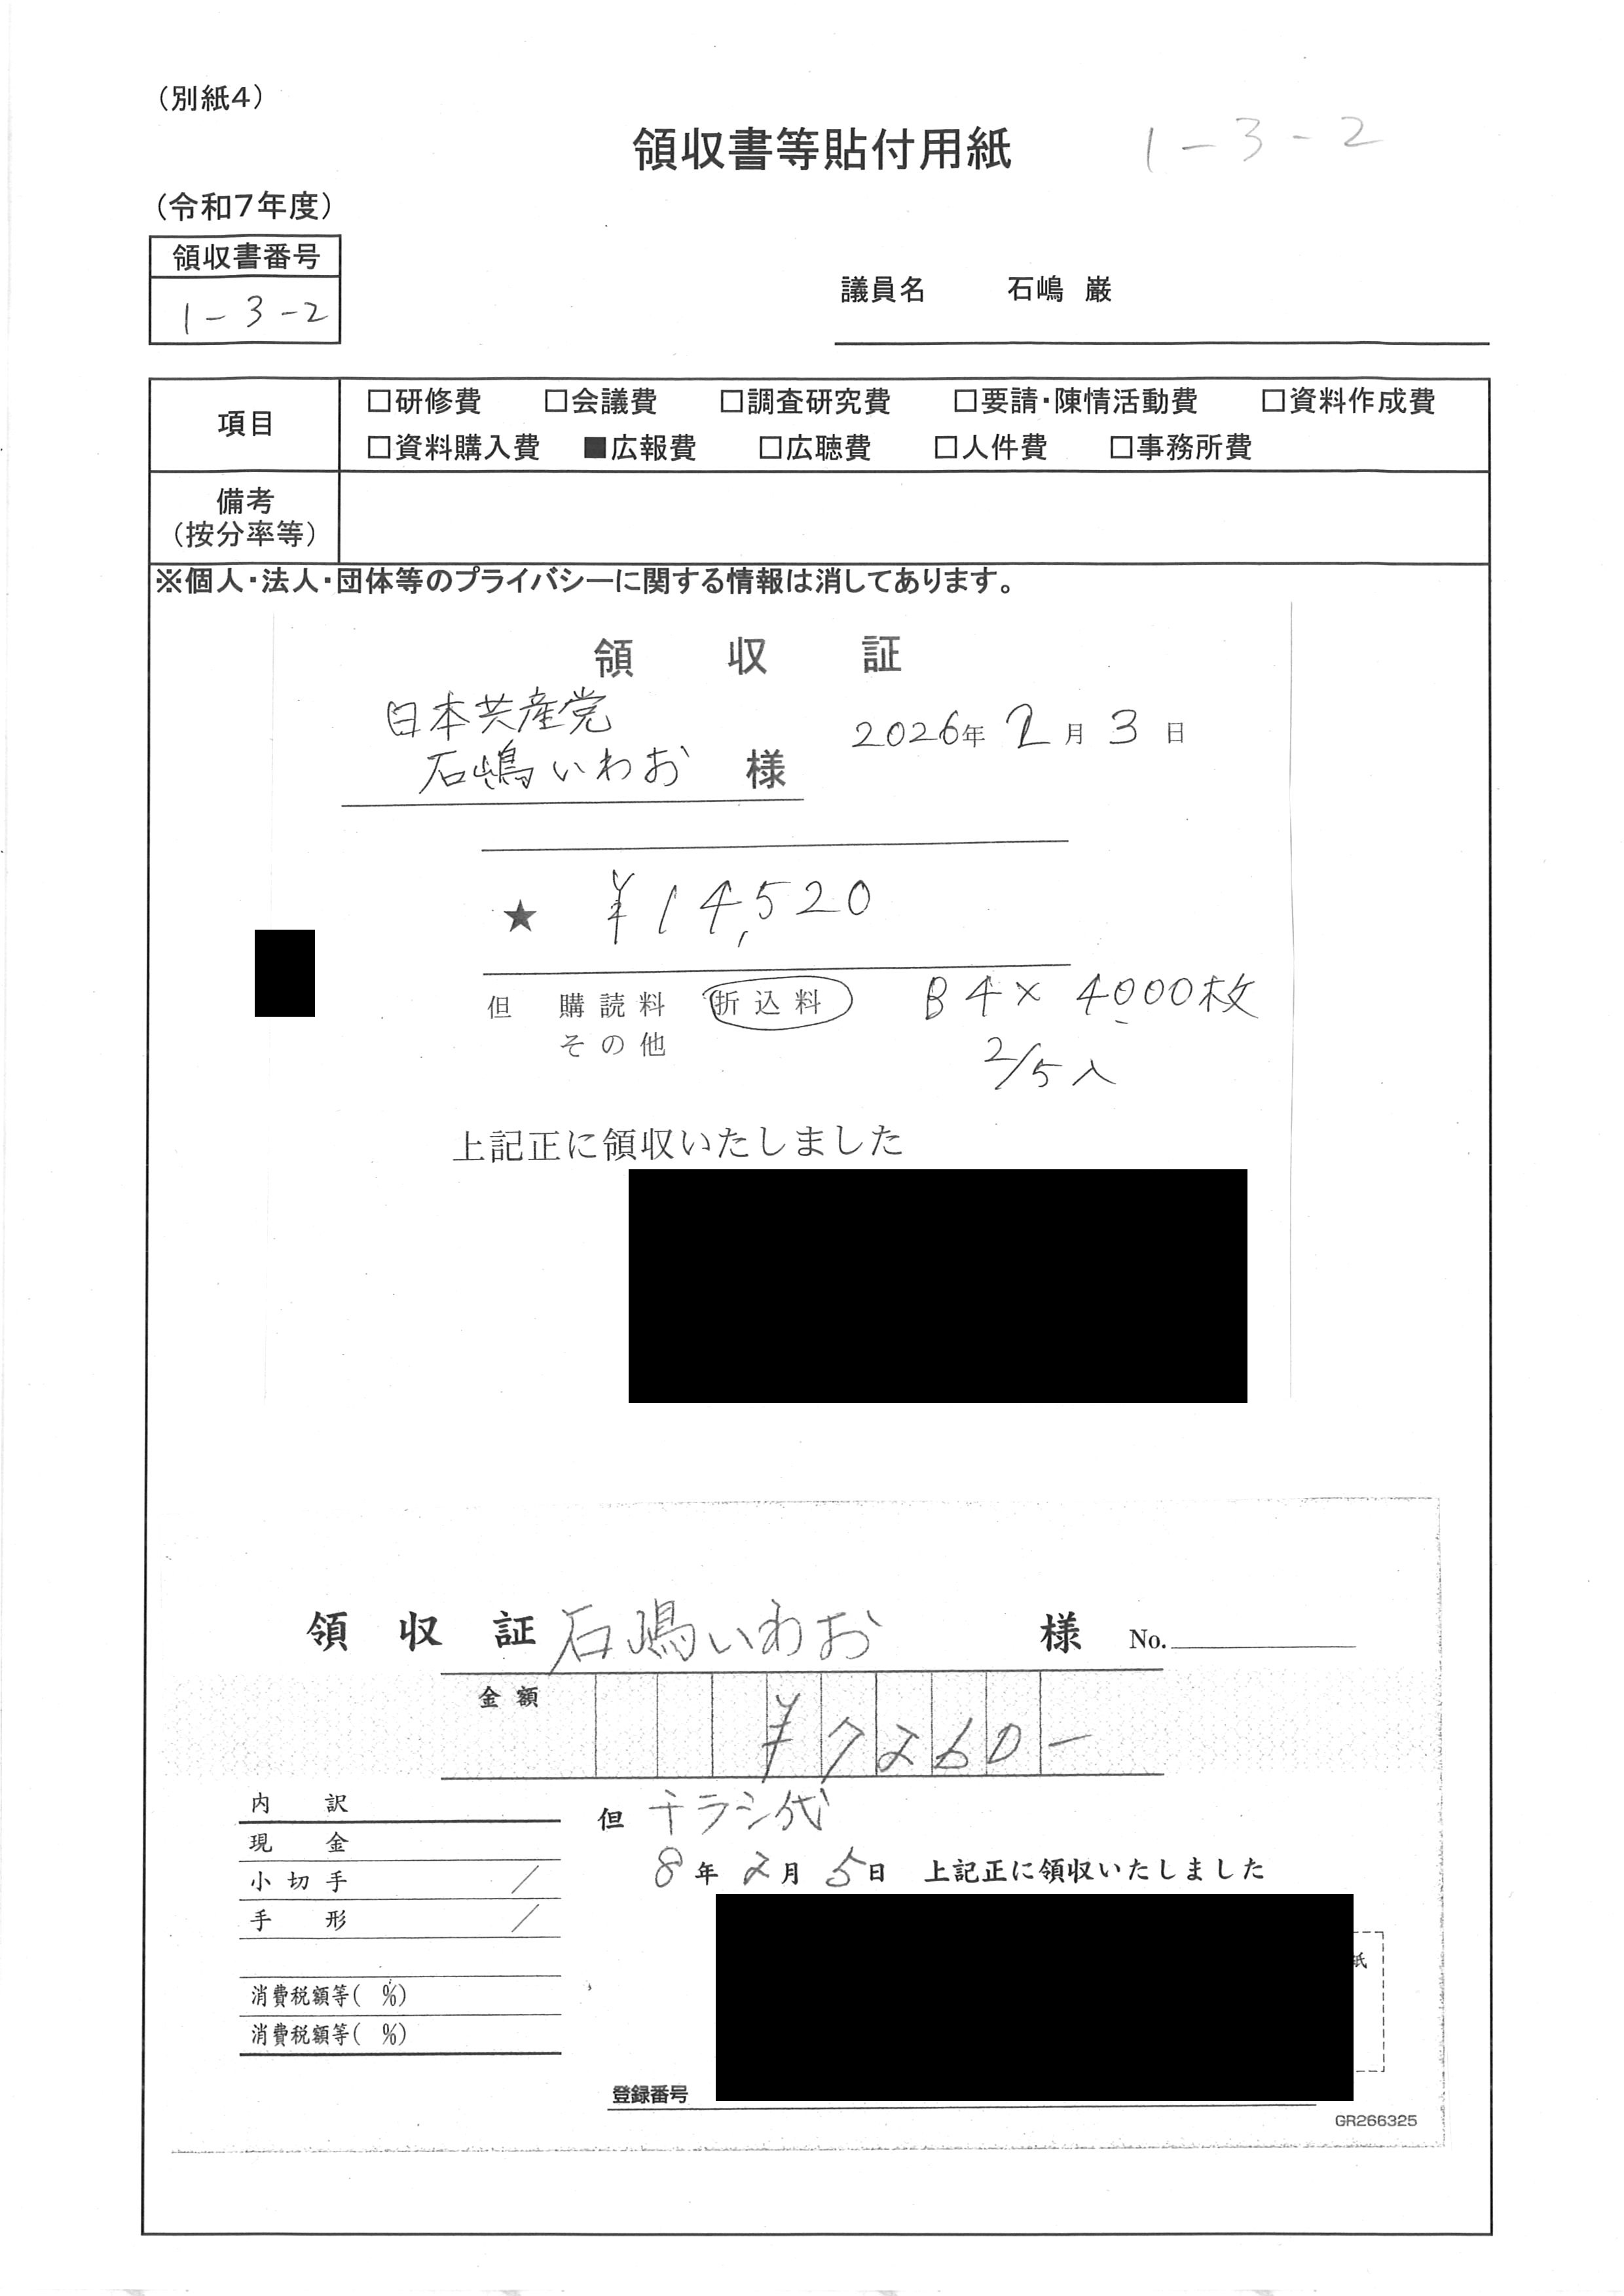 （別紙4）
領収書等貼付用紙
1-3-2
（令和7年度）
領収書番号
1-3-2
議員名 石嶋 巌
項目
□研修費 □会議費 □調査研究費 □要請・陳情活動費 □資料作成費
□資料購入費 ■広報費 □広聴費 □人件費 □事務所費
備考
（按分率等）
※個人・法人・団体等のプライバシーに関する情報は消してあります。
領 収 証
日本共産党
石嶋いわお 様
2026年 2月 3日
★ ¥14,520
但 購読料 折込料 B4× 4000枚
その他 2/5入
上記正に領収いたしました
領 収 証 石嶋いわお 様 No.
金額 ¥7260-
内 訳
現 金
小切手 /
手 形 /
消費税額等( %)
消費税額等( %)
但 チラシ代
8年 2月 5日 上記正に領収いたしました
紙
登録番号
GR266325